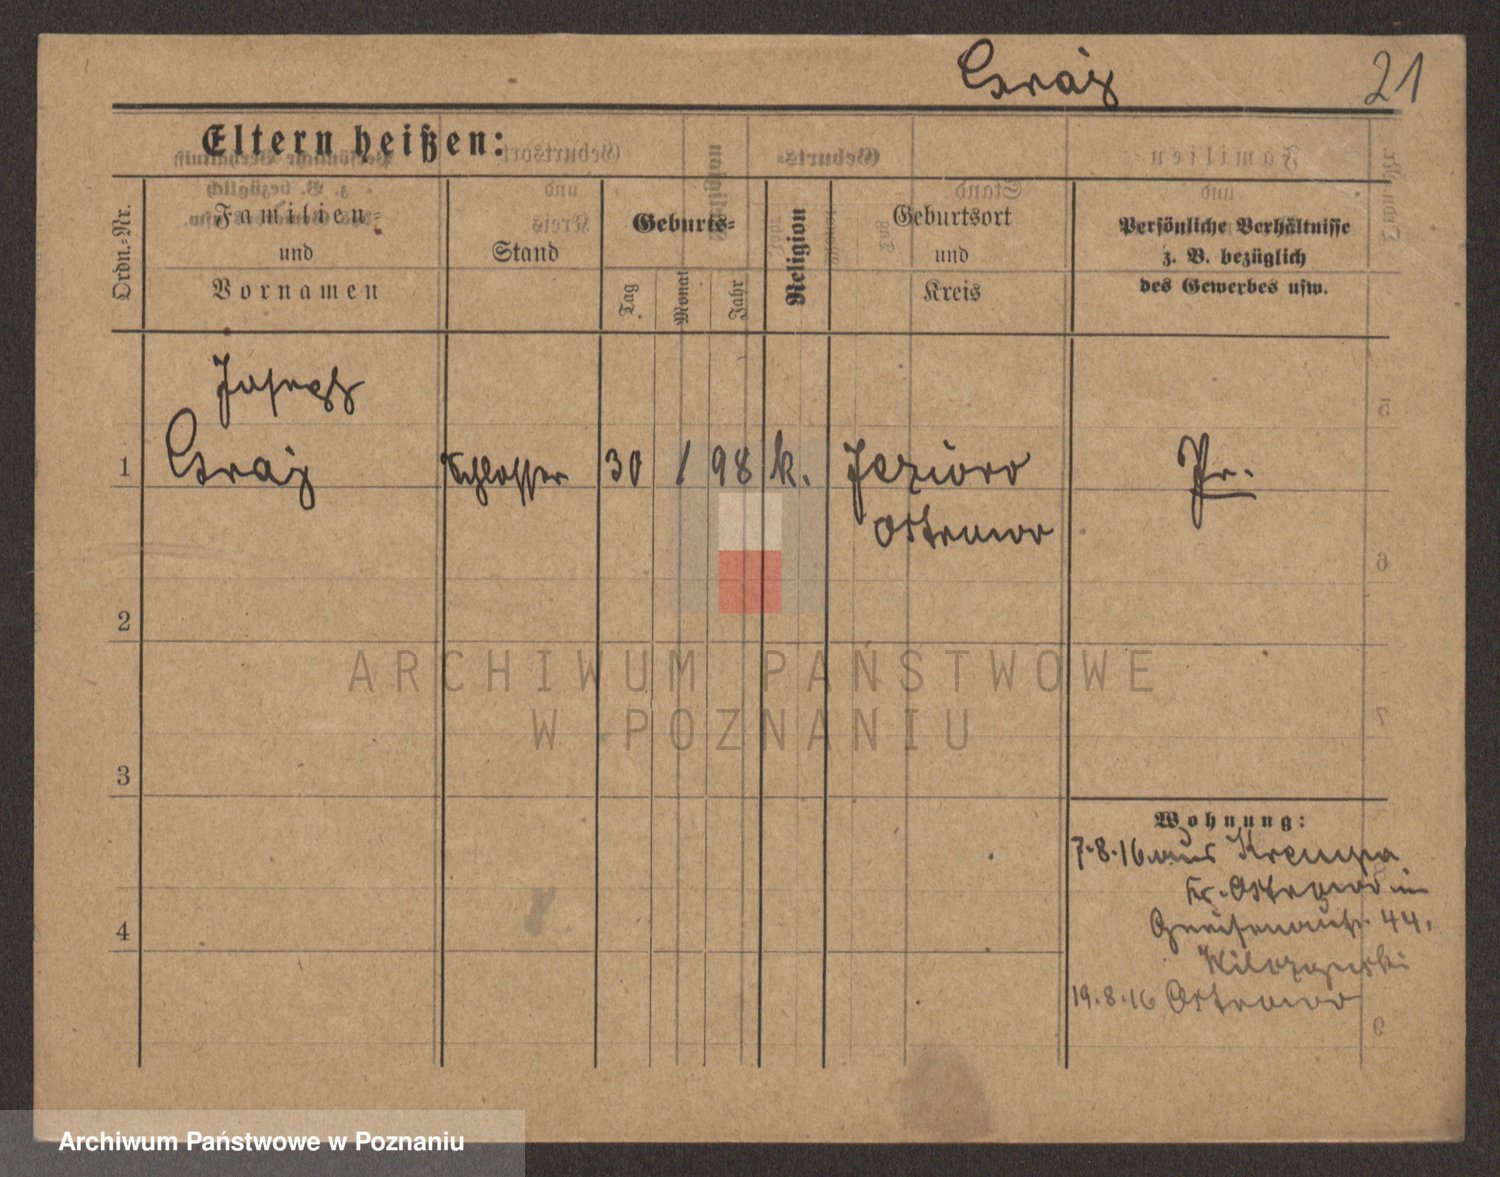 Graj 21
Eltern heißen:
Ordn.-Nr.
Familien-
und
Vornamen
Stand
Geburts-
Tag
Monat
Jahr
Religion
Geburtsort
und
Kreis
Persönliche Verhältnisse
z. B. bezüglich
des Gewerbes usw.
Joseph
1 Graj Schlosser 30 1 98 k. Jezioro Pr.
Ostrowo
2
ARCHIWUM PAŃSTWOWE
W POZNANIU
3
Wohnung:
7.8.16 aus Krempa
Kr. Ostrowo in
44,
4
19.8.16 Ostrowo
Archiwum Państwowe w Poznaniu